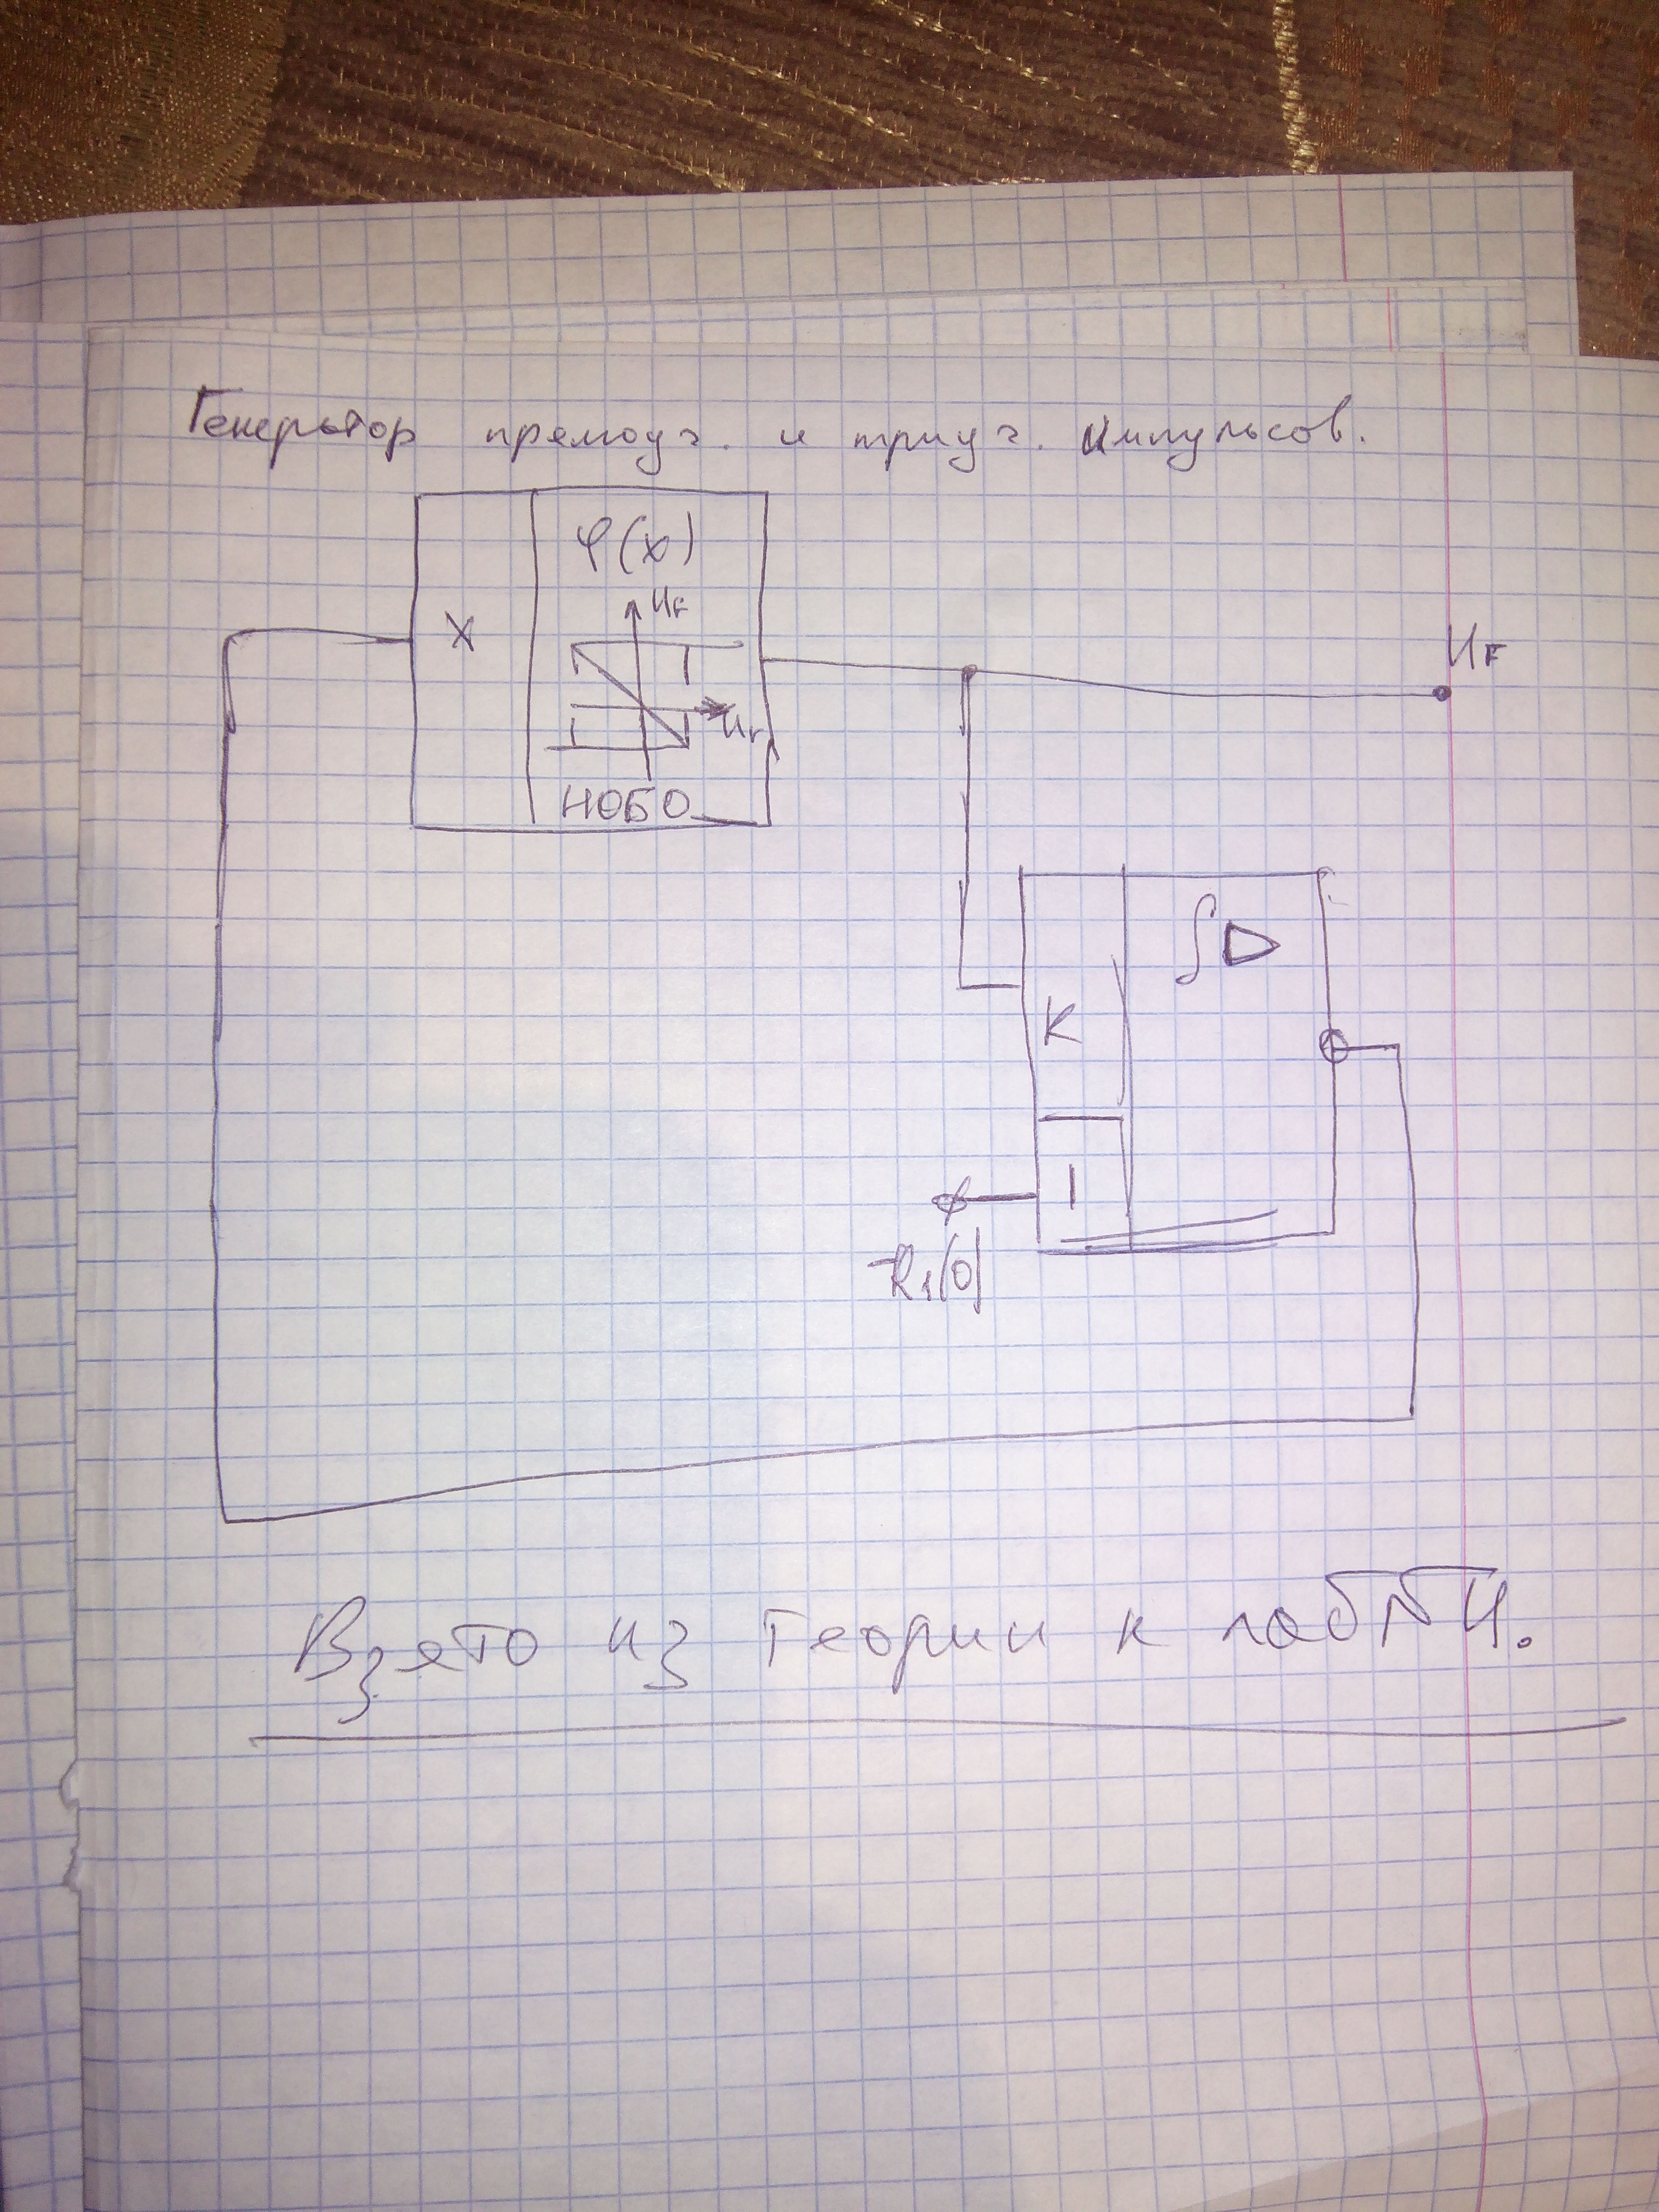 Генератор прямоуг. и триуг. импульсов.
φ(x)
U_F
X
U_F
НОБО
∫▷
K
I
Взято из теории к лаб №4.